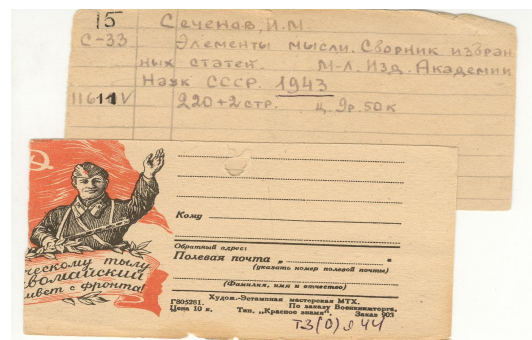 15
Сеченов, И.М.
С-33
Элементы мысли. Сборник избран
ных статей. М-Л. Изд. Академии
Наук СССР. 1943
11611V
220+2 стр. ц. 9р. 50к
ческому тылу
вомайский
ивет с фронта!
Кому
Обратный адрес:
Полевая почта „ "
(указать номер полевой почты)
(Фамилия, имя и отчество)
Худож.-Эстампная мастерская МТХ.
Г805281. По заказу Военвоенторга.
Цена 10 к. Тип. „Красное знамя". Заказ 903
Т3(0)я44